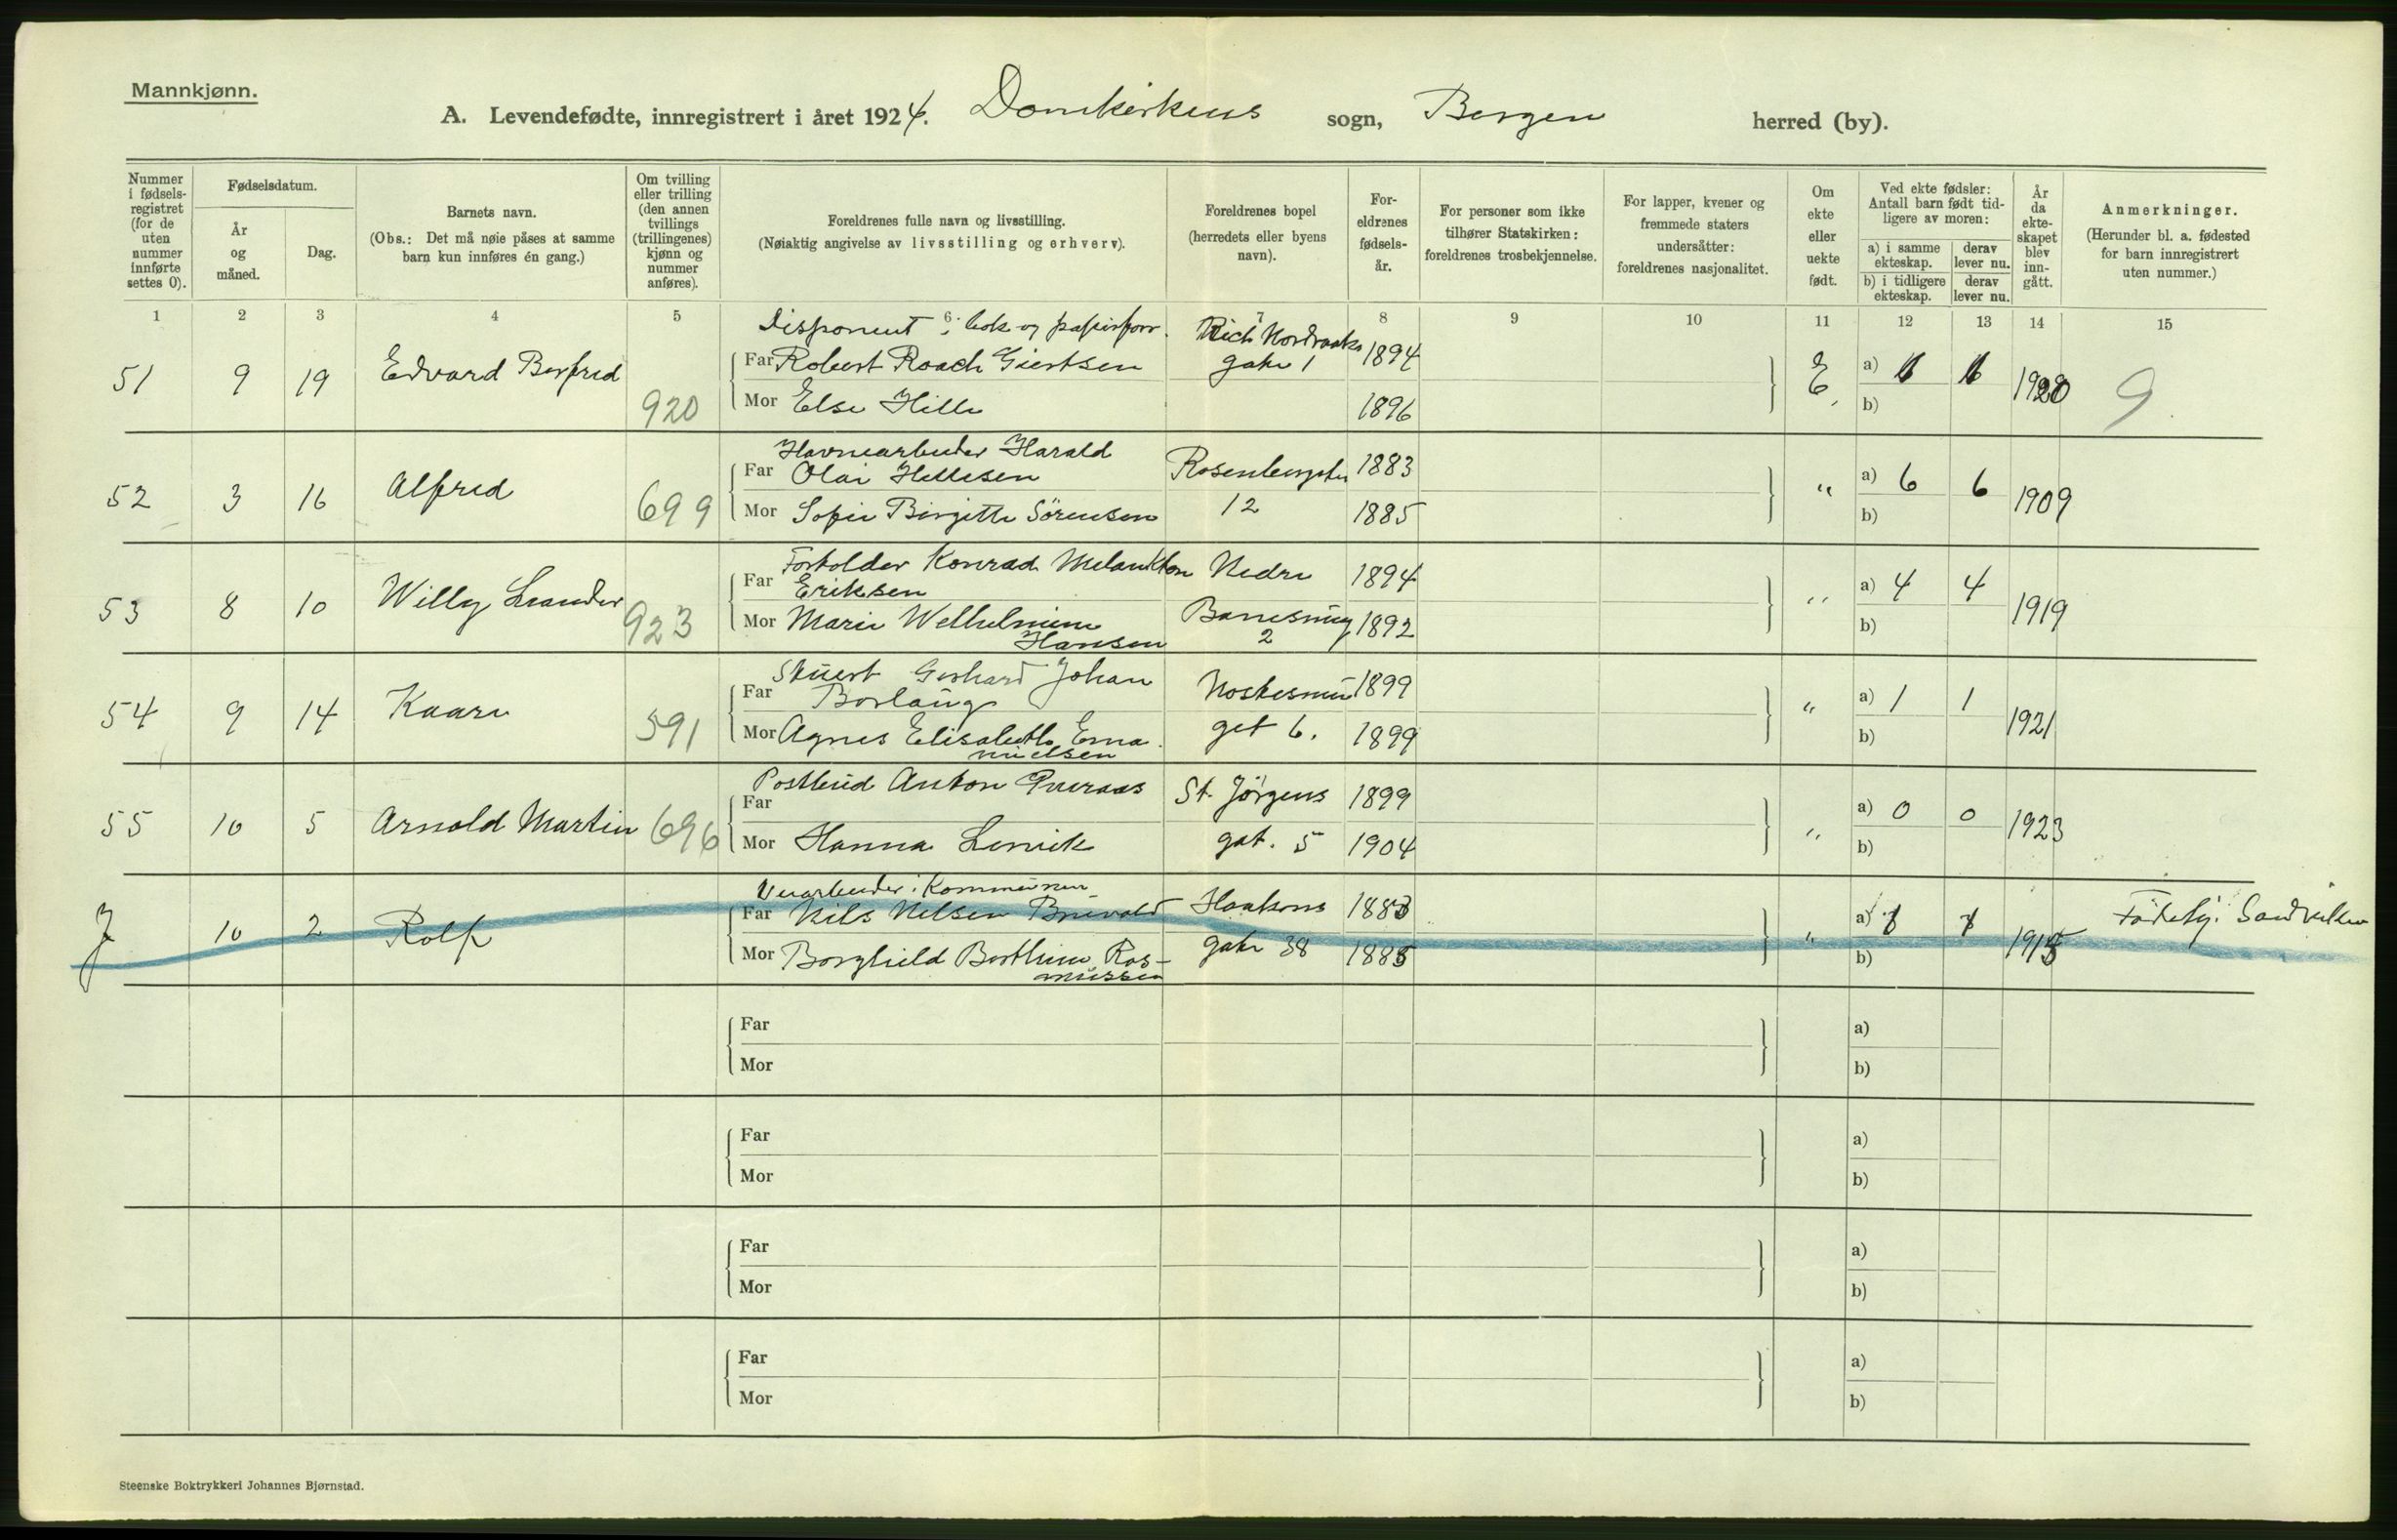 Mannkjønn.
A. Levendefødte, innregistrert i året 1924. Domkirkens sogn, Bergen herred (by).
Nummer i fødsels-registret (for de uten nummer innførte settes 0).
Fødselsdatum.
År og måned.
Dag.
Barnets navn.
(Obs.: Det må nøie påses at samme barn kun innføres én gang.)
Om tvilling eller trilling (den annen tvillings (trillingenes) kjønn og nummer anføres).
Foreldrenes fulle navn og livsstilling.
(Nøiaktig angivelse av livsstilling og erhverv).
Foreldrenes bopel (herredets eller byens navn).
For-eldrenes fødsels-år.
For personer som ikke tilhører Statskirken: foreldrenes trosbekjennelse.
For lapper, kvener og fremmede staters undersåtter: foreldrenes nasjonalitet.
Om ekte eller uekte født.
Ved ekte fødsler: Antall barn født tid-ligere av moren:
a) i samme ekteskap.
derav lever nu.
b) i tidligere ekteskap.
derav lever nu.
År da ekte-skapet blev inn-gått.
Anmerkninger.
(Herunder bl. a. fødested for barn innregistrert uten nummer.)
1 2 3 4 5 6 7 8 9 10 11 12 13 14 15
Disponent i bok og papirforr. Rich Nordraaks
51 9 19 Edvard Berfred 920 Far Robert Roach Giertsen gate 1 1894 E. a) 1920 9
Mor Else Hille 1896 b)
Havnearbeider Harald
52 3 16 Alfred 699 Far Olai Hellesen Rosenbergsgt 1883 " a) 6 6 1909
Mor Sofie Birgitte Sörensen 12 1885 b)
Forholder Konrad Melankton Nedre
53 8 10 Willy Leander 923 Far Eriksen 1894 " a) 4 4 1919
Mor Marie Welhelmine Banesmug 1892 b)
Hansen 2
Skuert Gerhard Johan
54 9 14 Kaare 591 Far Borlaug 1899 " a) 1 1 1921
Mor Agnes Elisabeth Ema get 6. 1899 b)
nuelsen
Postbud Anton St. Jörgens 1899
55 10 5 Arnold Martin 696 Far " a) 0 0 1923
Mor Hanna gat. 5 1904 b)
i Kommunen
10 2 Rolf Far Nils Nelsen Haakons 1883 " a) Sandviken
Mor Borghild Berthine Ras- gate 38 1885 b) 1915
mussen
Far a)
Mor b)
Far a)
Mor b)
Far a)
Mor b)
Far a)
Mor b)
Steenske Boktrykkeri Johannes Bjørnstad.